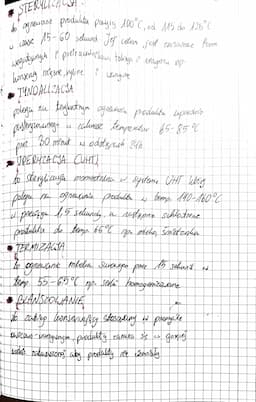 • STERYLIZACJA
to ogrzewanie produktu powyżej 100°C, od 115 do 125°C
w czasie 15-60 sekund. Jej celem jest niszczenie form
wegetatywnych i przetrwalnikowych
konserwy mięsne, rybne i
• TYNDALIZACJA
polega na trzykrotnym ogrzewaniu produktu uprzednio
pasteryzowanego w zakresie temperatur 65-85°C
prez 30 minut w odstępach 24h
• UPERYZACJA (UHT)
to sterylizacja momentalna w systemie UHT, która
polega na ogrzewaniu produktu w temp. 140-160°C
w przeciągu 1,5 sekundy, a następnie schłodzenie
produktu do temp. 65°C np. mleko, śmietanka
• TERMIZACJA
to ogrzewanie mleka surowego prez 15 sekund w
temp. 55-65°C np. serki homogenizowane
• BLANSZOWANIE
to zabieg konserwujący stosowany w przemyśle
owocowo-warzywnym, produkty zanurza się w gorącej
wodzie aby produkty nie